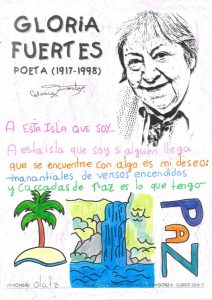 GLORIA
FUERTES
POETA (1917-1998)
A ESTA ISLA QUE SOY...
A esta isla que soy si alguien llega
que se encuentre con algo es mi deseo:
manantiales de versos encendidos
y cascadas de paz es lo que tengo
PAZ
MI NOMBRE: Olatz
CURSO 2016-17